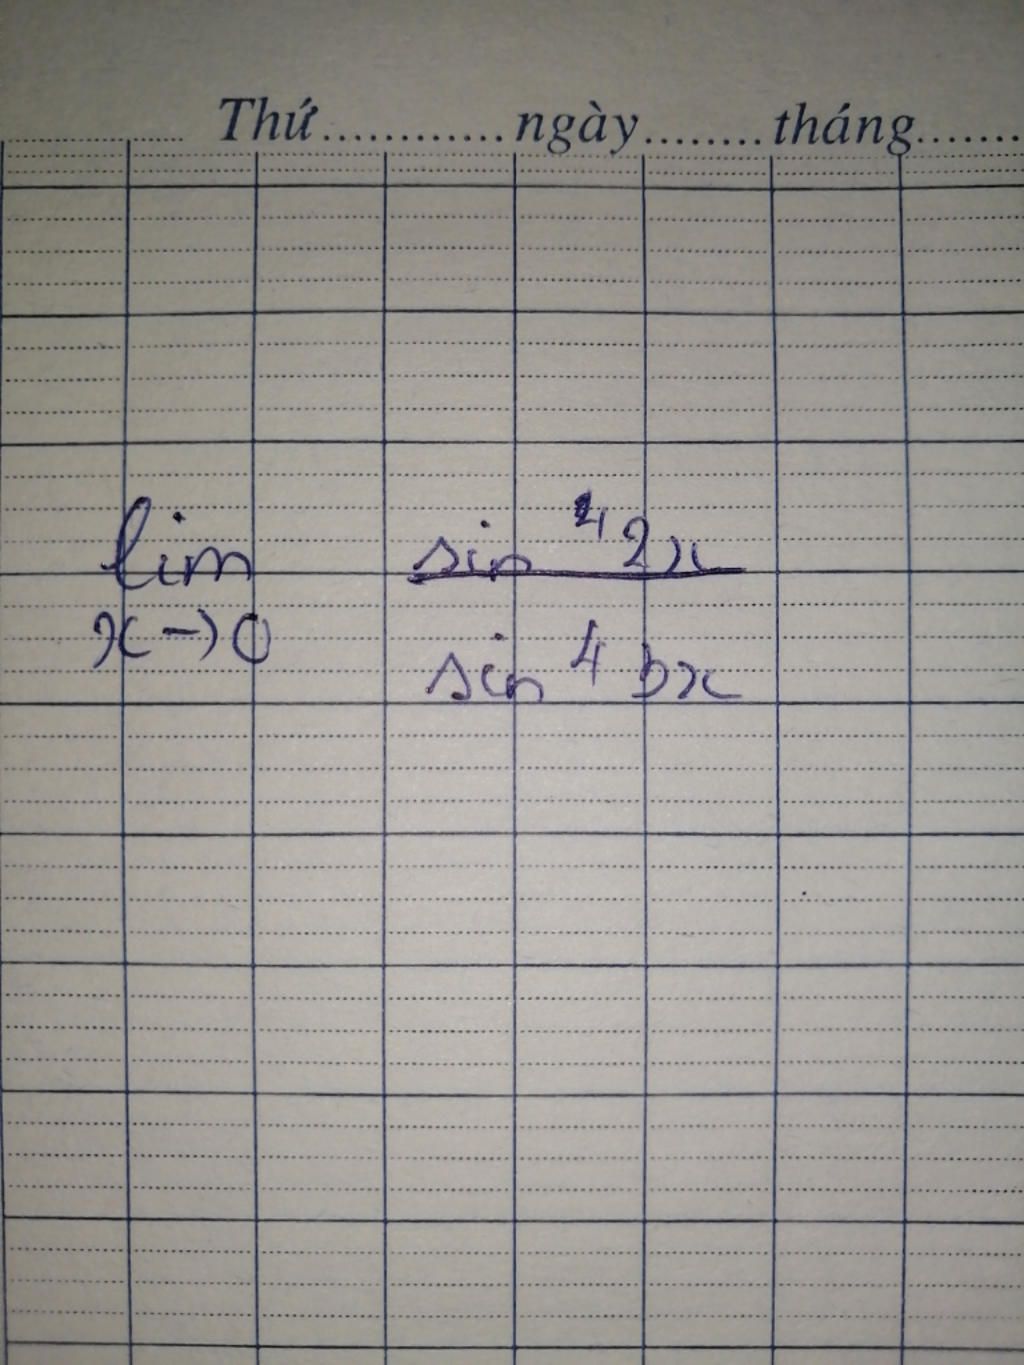 Thứ............ngày........tháng.......
lim sin⁴ 2x
x→0 sin⁴ 3x